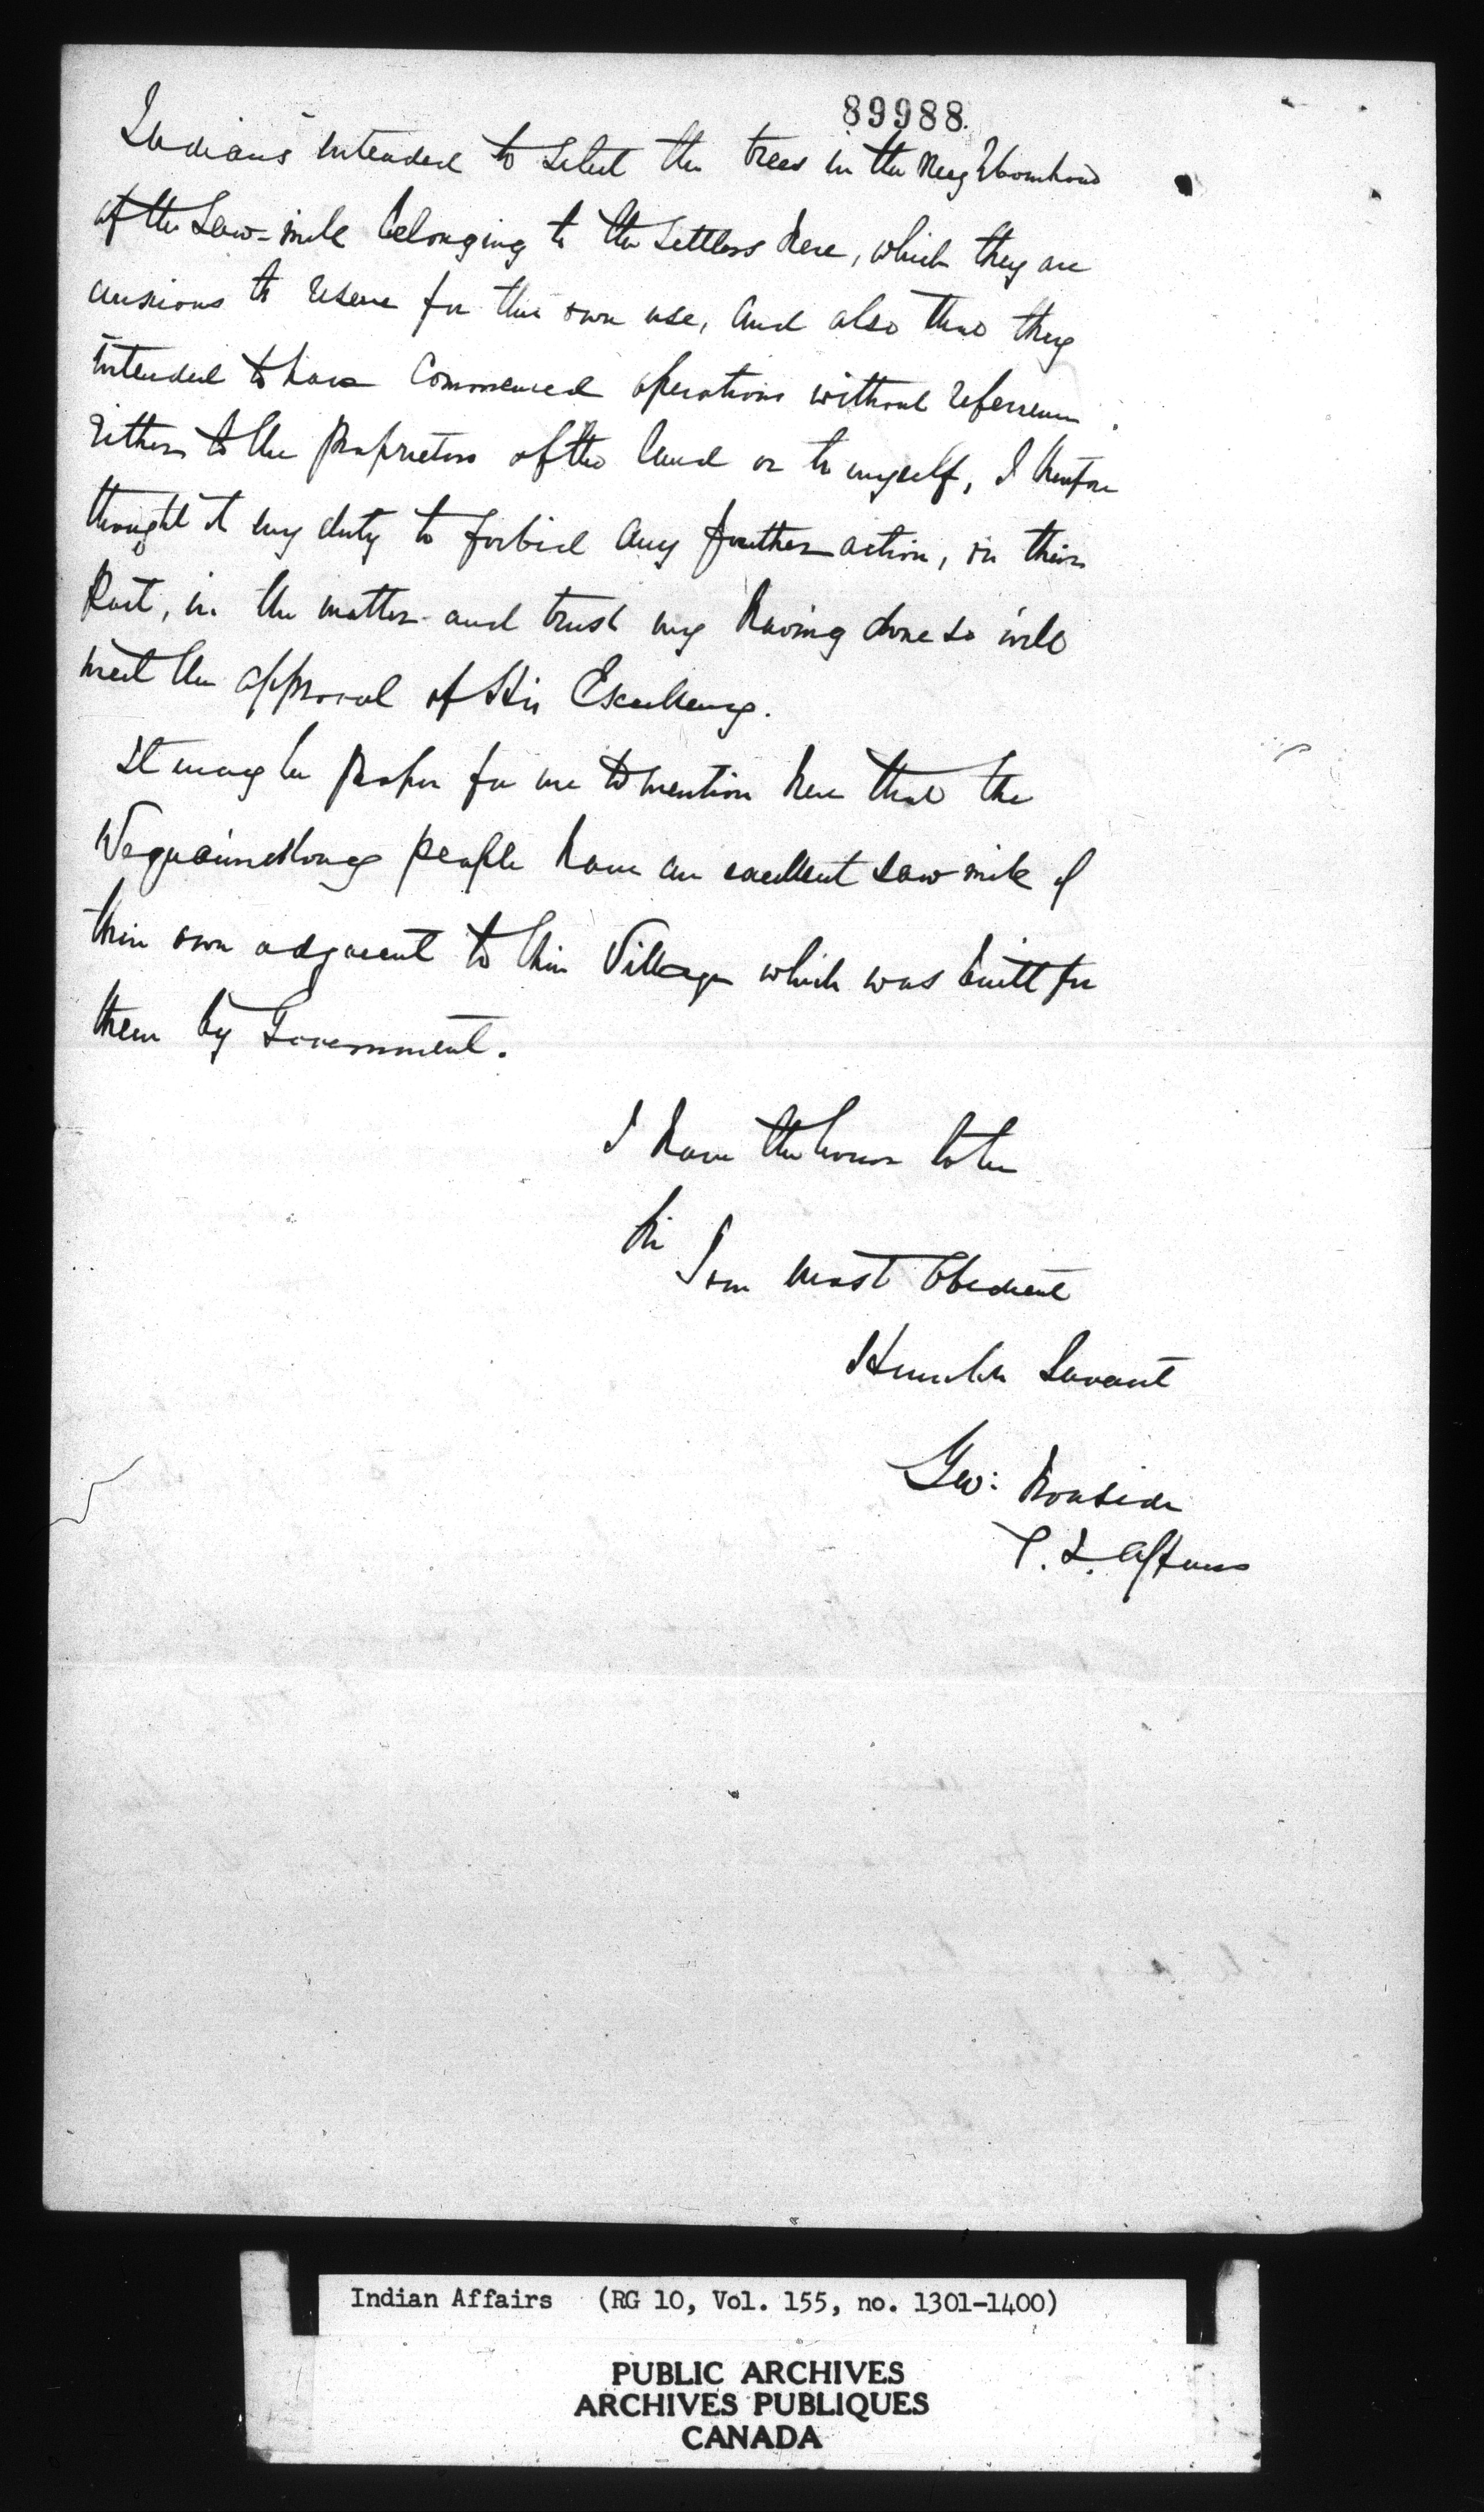 89988.
Indians intended to select the trees in the neighbourhood
of the Saw-mill belonging to the Settlers here, which they are
anxious to reserve for their own use, and also that they
intended to have commenced operations without reference
either to the proprietors of the land or to myself, I therefore
thought it my duty to forbid any further action, on their
part, in the matter and trust my having done so will
meet the approval of His Excellency.
It may be proper for me to mention here that the
people have an excellent saw mill of
their own adjacent to their Village which was built for
them by Government.
I have the honor to be
Sir
Your most Obedient
Humble Servant
Geo: Ironside
S. I. Affairs
Indian Affairs (RG 10, Vol. 155, no. 1301-1400)
PUBLIC ARCHIVES
ARCHIVES PUBLIQUES
CANADA